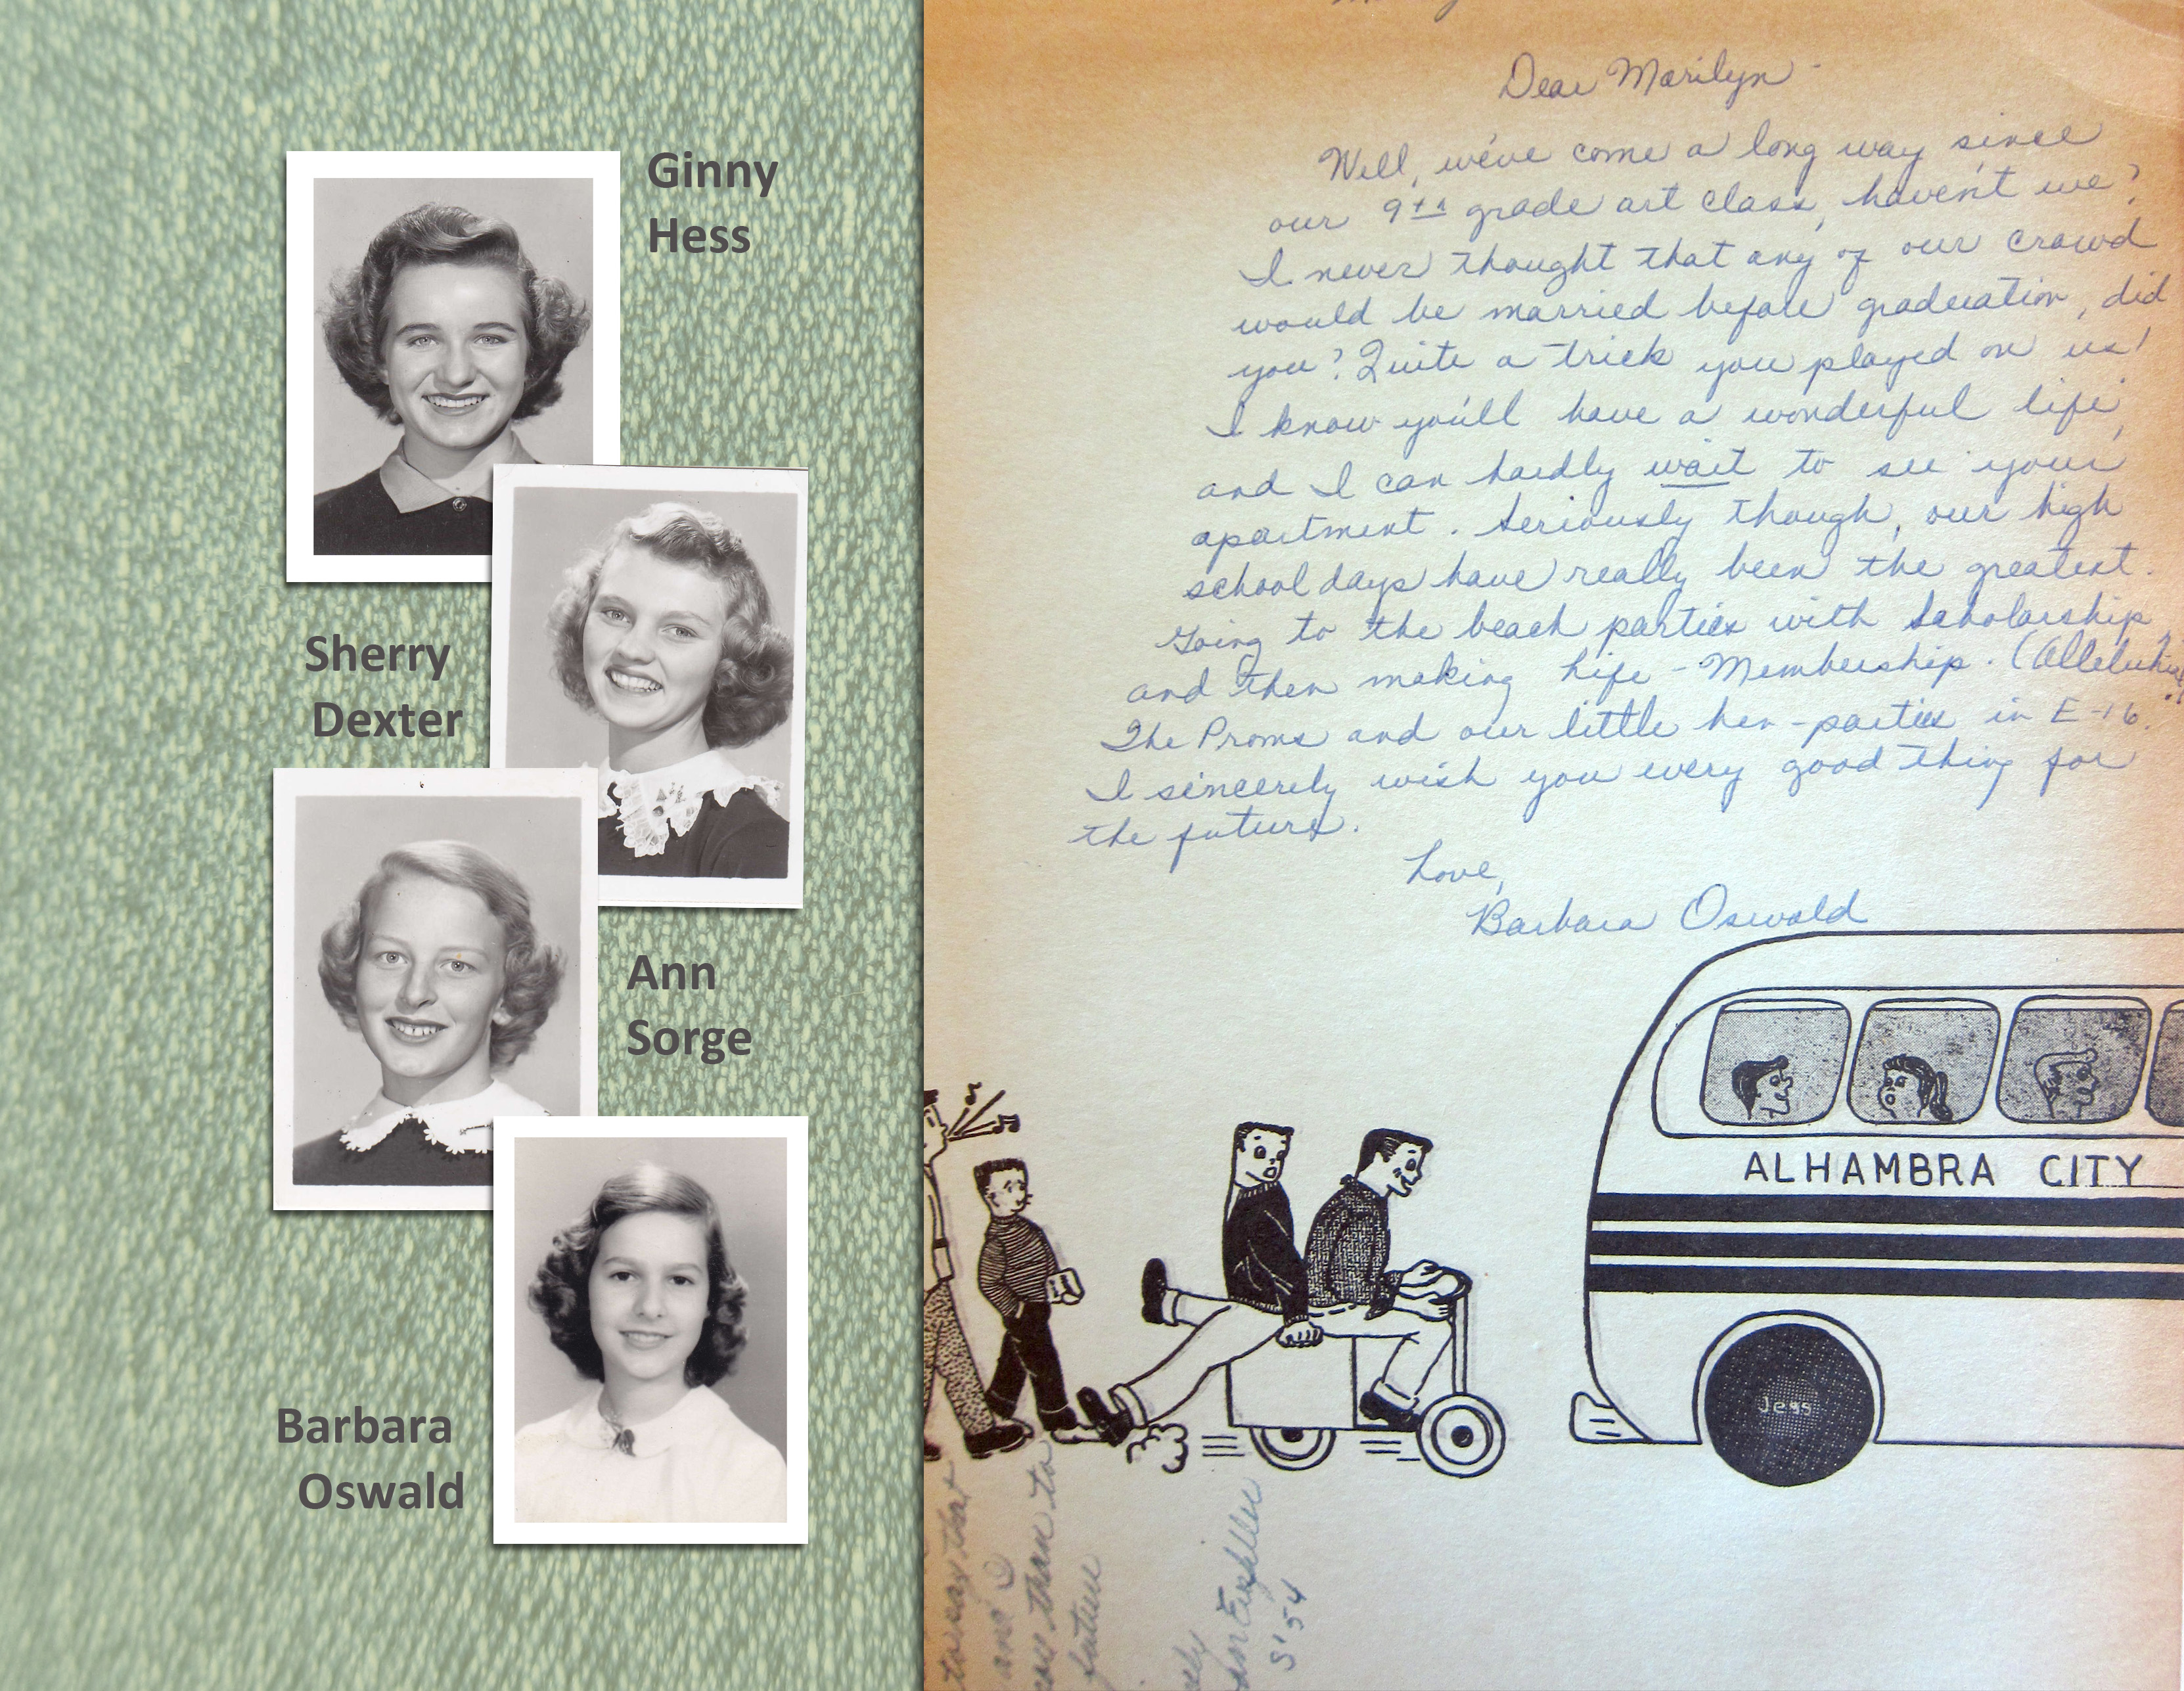 Ginny
Hess
Sherry
Dexter
Ann
Sorge
Barbara
Oswald
Dear Marilyn
Well, we've come a long way since
our 9th grade art class, haven't we?
I never thought that any of our crowd
would be married before graduation, did
you? Quite a trick you played on us!
I know you'll have a wonderful life,
and I can hardly wait to see your
apartment. Seriously though, our high
school days have really been the greatest.
Going to the beach parties with Scholarship
and then making Life-Membership. (Alleluhia!)
The Proms and our little hen-parties in E-16.
I sincerely wish you every good thing for
the future.
Love,
Barbara Oswald
ALHAMBRA CITY
Jess
to say that
and
than to
future
S'54